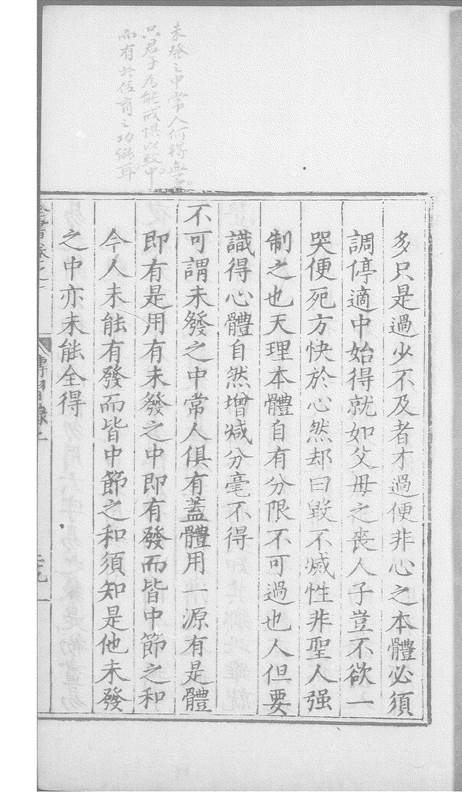 未發之中常人何得
只君子爲能戒懼以致中
而有於位育之功
多只是過少不及者才過便非心之本體必須
調停適中始得就如父母之喪人子豈不欲一
哭便死方快於心然却曰毀不㓕性非聖人强
制之也天理本體自有分限不可過也人但要
識得心體自然增减分毫不得
不可謂未發之中常人俱有蓋體用一源有是體
即有是用有未發之中即有發而皆中節之和
今人未能有發而皆中節之和須知是他未發
之中亦未能全得
傳習錄